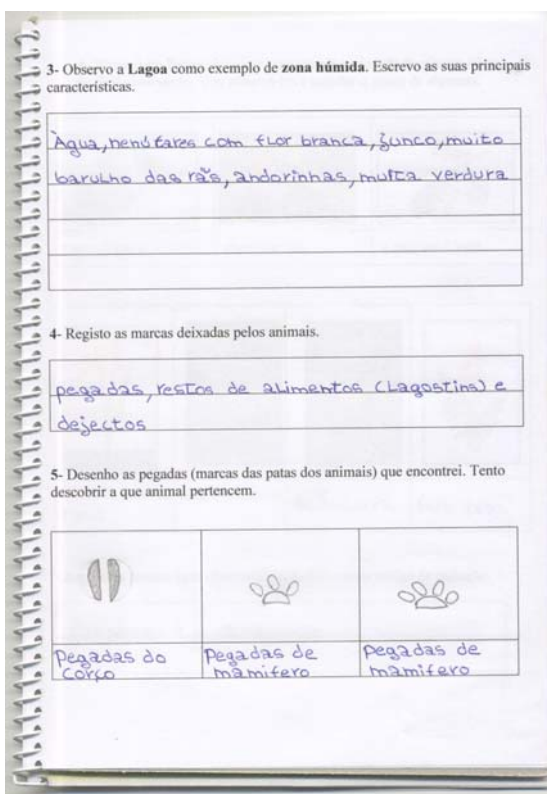 3- Observo a Lagoa como exemplo de zona húmida. Escrevo as suas principais
características.
Àgua, nenúfares com flor branca, junco, muito
barulho das rãs, andorinhas, muita verdura
4- Registo as marcas deixadas pelos animais.
pegadas, restos de alimentos (Lagostins) e
dejectos
5- Desenho as pegadas (marcas das patas dos animais) que encontrei. Tento
descobrir a que animal pertencem.
Pegadas do
corço
Pegadas de
mamifero
pegadas de
mamifero